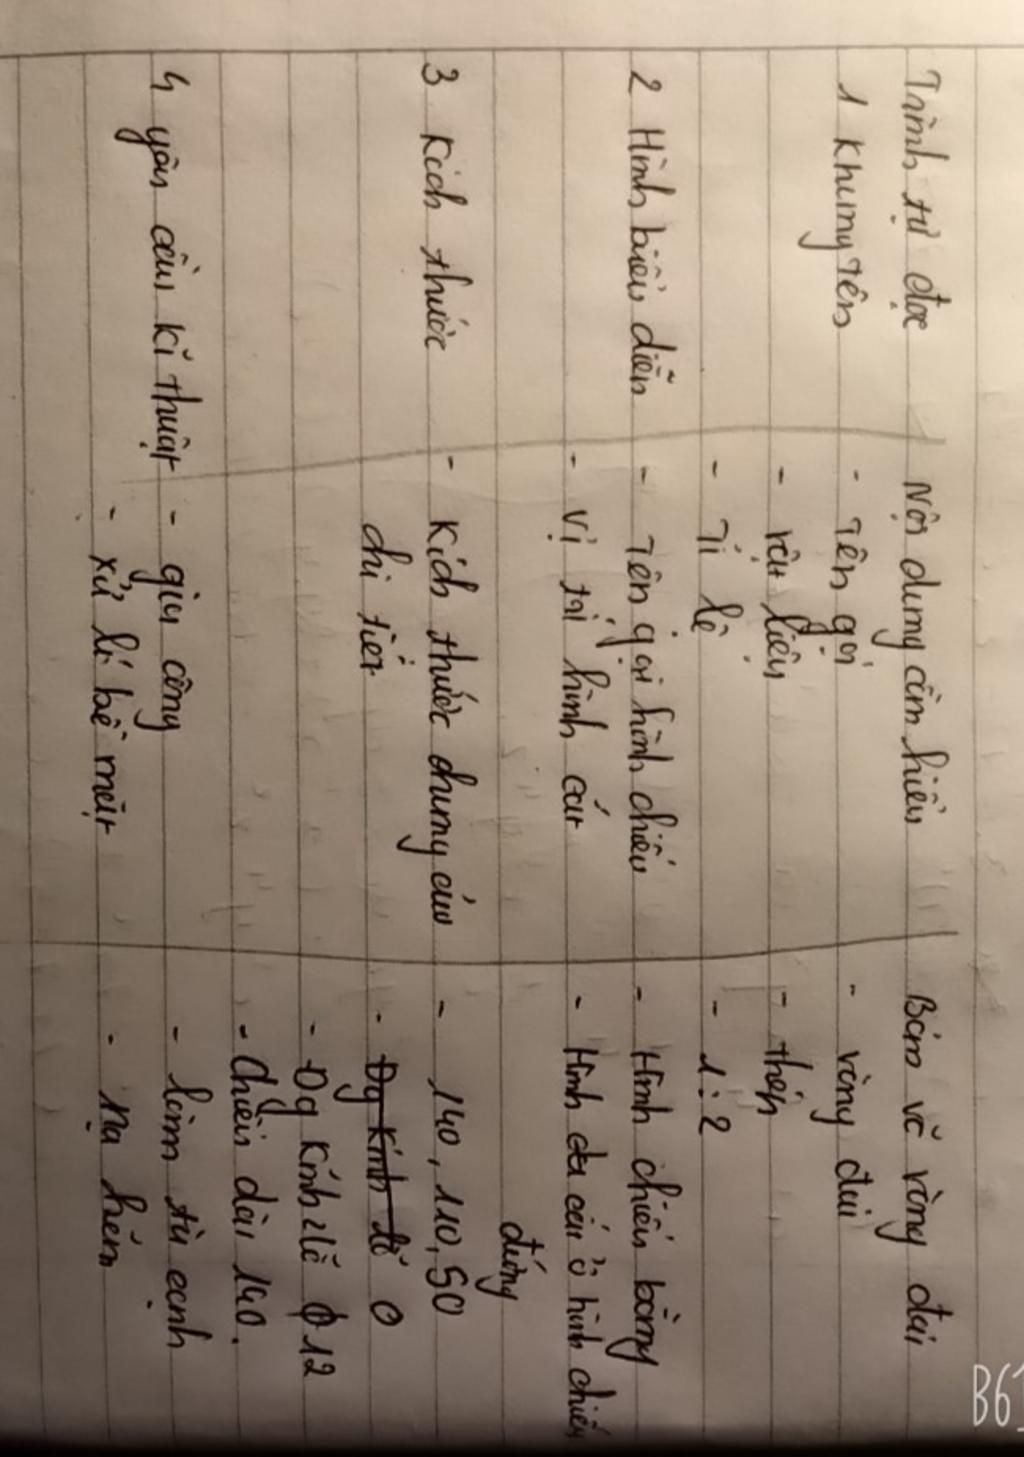 Trình tự đọc Nội dung cần hiểu Bản vẽ vòng đai
1 Khung tên - Tên gọi - vòng đai
- vật liệu - thép
- Tỉ lệ - 1:2
2 Hình biểu diễn - Tên gọi hình chiếu - Hình chiếu bằng
- vị trí hình cắt - Hình cắt ở hình chiếu
đứng
3 Kích thước - Kích thước chung của - 140, 110, 50
chi tiết - Đg kính lỗ 0
- Đg kính lỗ ϕ12
- Chiều dài 140.
4 yêu cầu kĩ thuật - gia công - làm tù cạnh
- xử lí bề mặt - mạ kẽm
B61